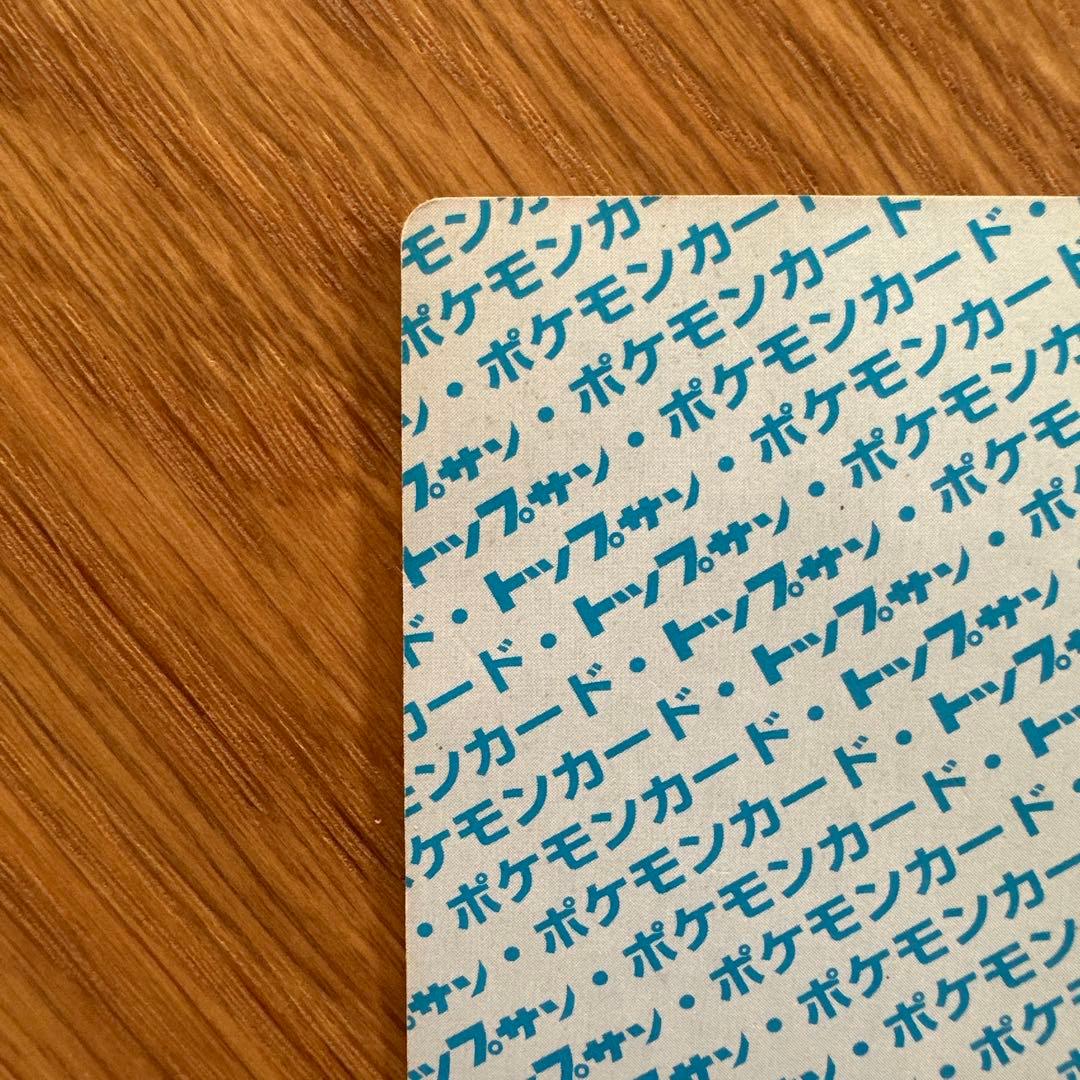 モンカ
ポケモンカー
ン・ポケモンカード
プサン・ポケモンカード
トップサン・ポケモンカード・
ド・トップサン・ポケモンカード
カード・トップサン・ポケモンカ
ンカード・トップサン・ポケモ
ケモンカード・トップサン・ポ
・ポケモンカード・トップサン・
サン・ポケモンカード・トップサ
トップサン・ポケモンカード・ト
プサン・ポケモンカード・
サン・ポケモンカー
・ポケモン
ポケ